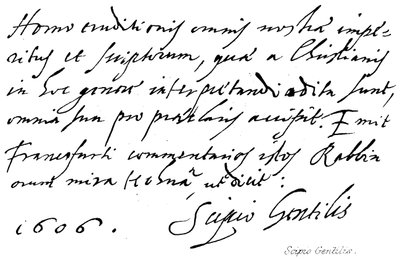 Homo eruditionis omnis nostrâ impe-
ritus et scriptorum, quæ a Christianis
in hoc genere interpretandi edita sunt,
omnia sua pro præclaris accipit. Emit
Francofurti commentarios istos Rabbin
orum mira ut dicit:
1606. Scipio Gentilis
Scipio Gentilis.